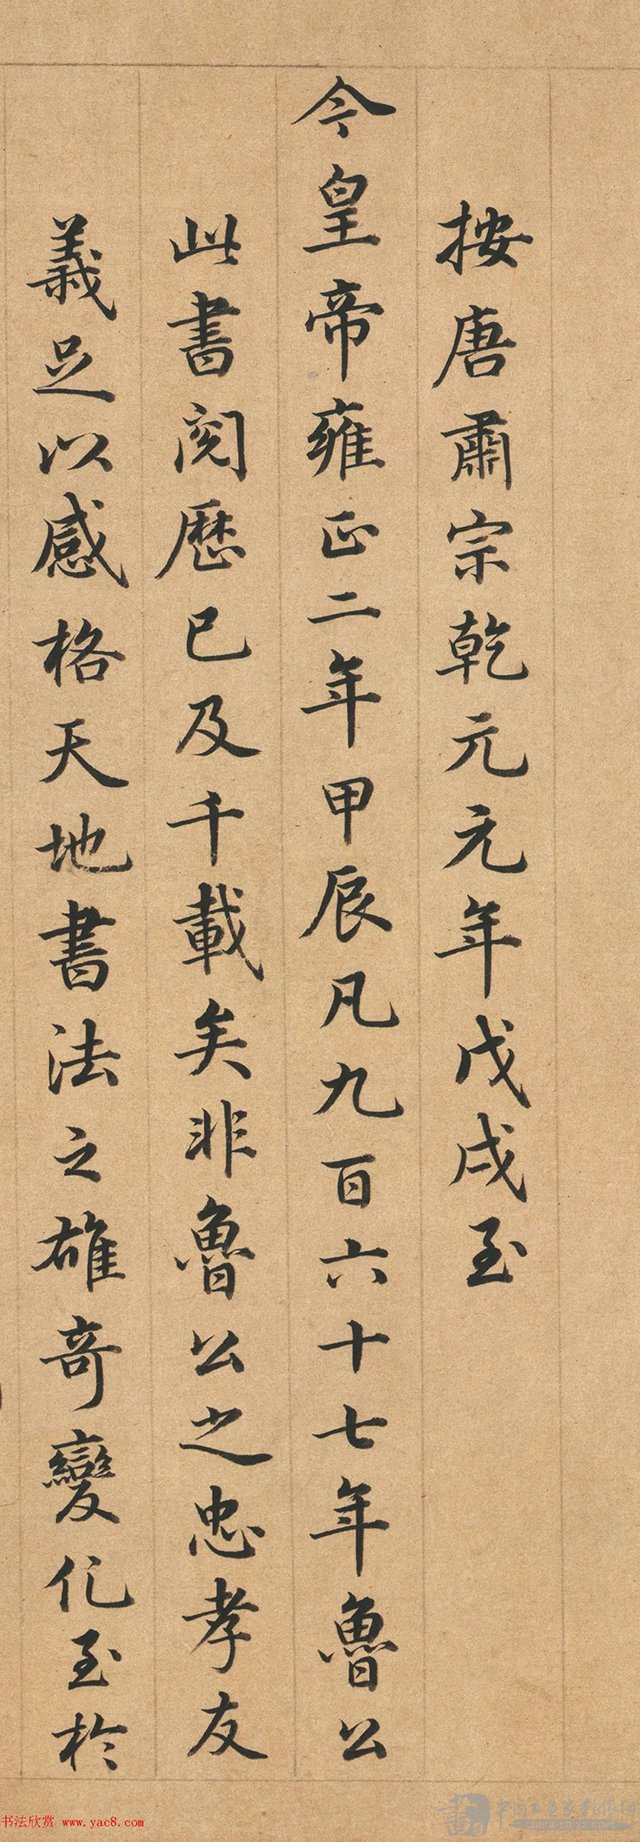 按唐肅宗乾元元年戊戌至
今皇帝雍正二年甲辰凡九百六十七年魯公
此書閱歷已及千載矣非魯公之忠孝友
義足以感格天地書法之雄奇變化至於
书法欣赏 www.yac8.com